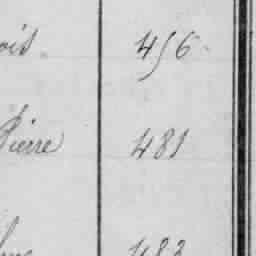 ois 456
Pierre 481
483